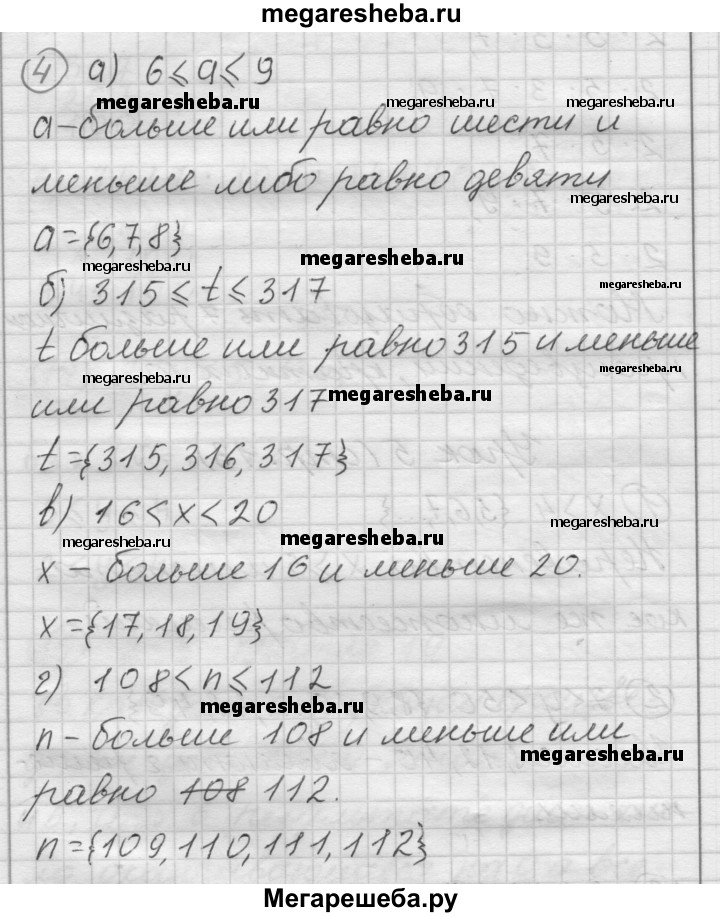 megaresheba.ru
4 а) 6 ⩽ a ⩽ 9
megaresheba.ru megaresheba.ru megaresheba.ru
а – больше или равно шести и
меньше либо равно девяти
megaresheba.ru
a = {6, 7, 8}
megaresheba.ru megaresheba.ru
б) 315 ⩽ t ⩽ 317
t больше или равно 315 и меньше
megaresheba.ru megaresheba.ru
или равно 317
megaresheba.ru
t = {315, 316, 317}
в) 16 < x < 20
megaresheba.ru megaresheba.ru megaresheba.ru
x – больше 16 и меньше 20.
x = {17, 18, 19}
г) 108 < n ⩽ 112
megaresheba.ru
n – больше 108 и меньше или
megaresheba.ru
равно 108 112.
n = {109, 110, 111, 112}
Мегарешеба.ру